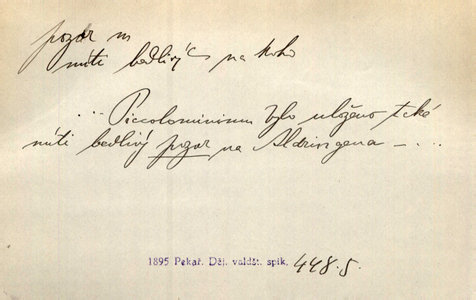 pozor m
míti bedlivý na koho
... Piccolominimu bylo uloženo také
míti bedlivý pozor na Aldringena – ...
1895 Pekař. Děj. valdšt. spik. 448.5.